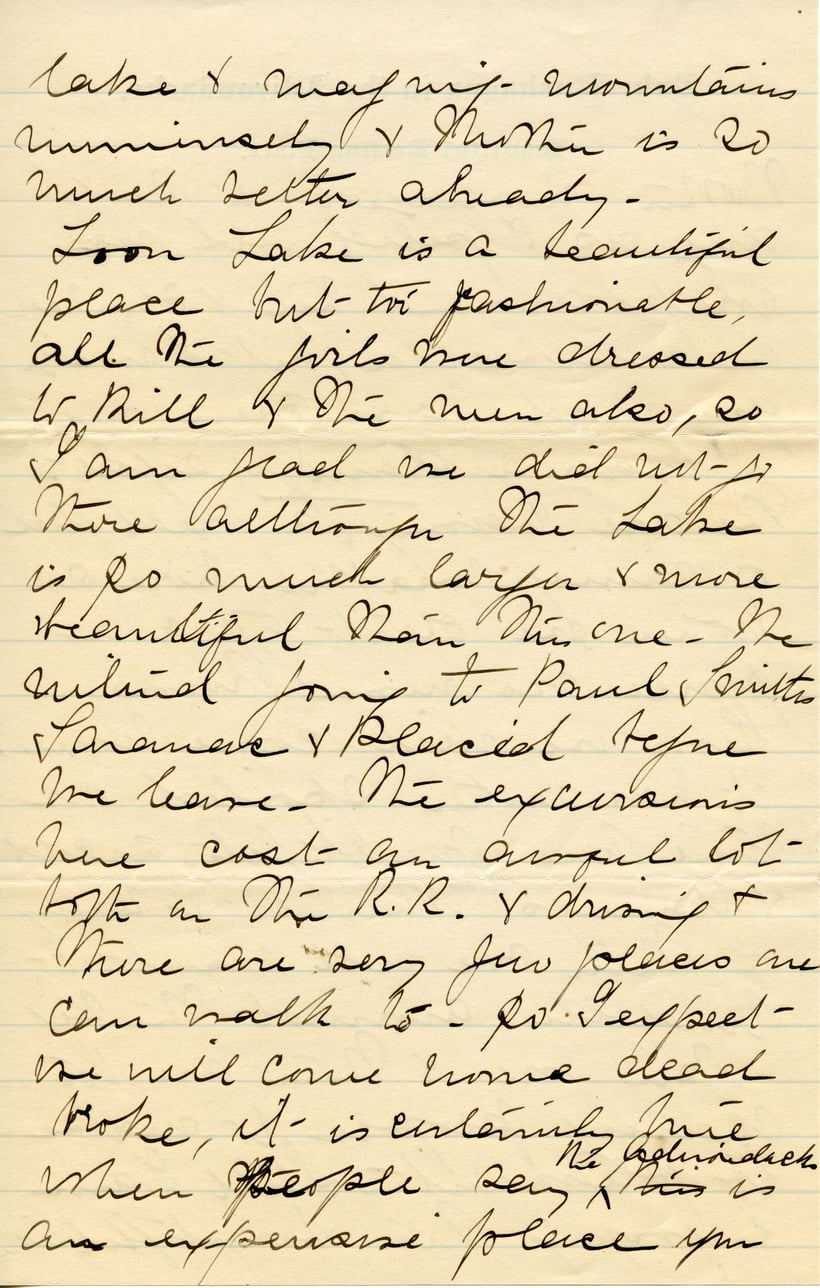 lake & magnif- mountains
immensely & Mother is so
much better already-
Loon Lake is a beautiful
place but too fashionable,
all the girls were dressed
to kill & the men also, so
I am glad we did not go
there although the Lake
is so much larger & more
beautiful than this one - We
intend going to Paul Smiths
Saranac & Placid before
we leave - The excursions
here cost an awful lot
both on the R.R. & driving &
there are very few places one
can walk to - So I expect
we will come home dead
broke, it is certainly true
when people say the Adirondacks is
an expensive place you